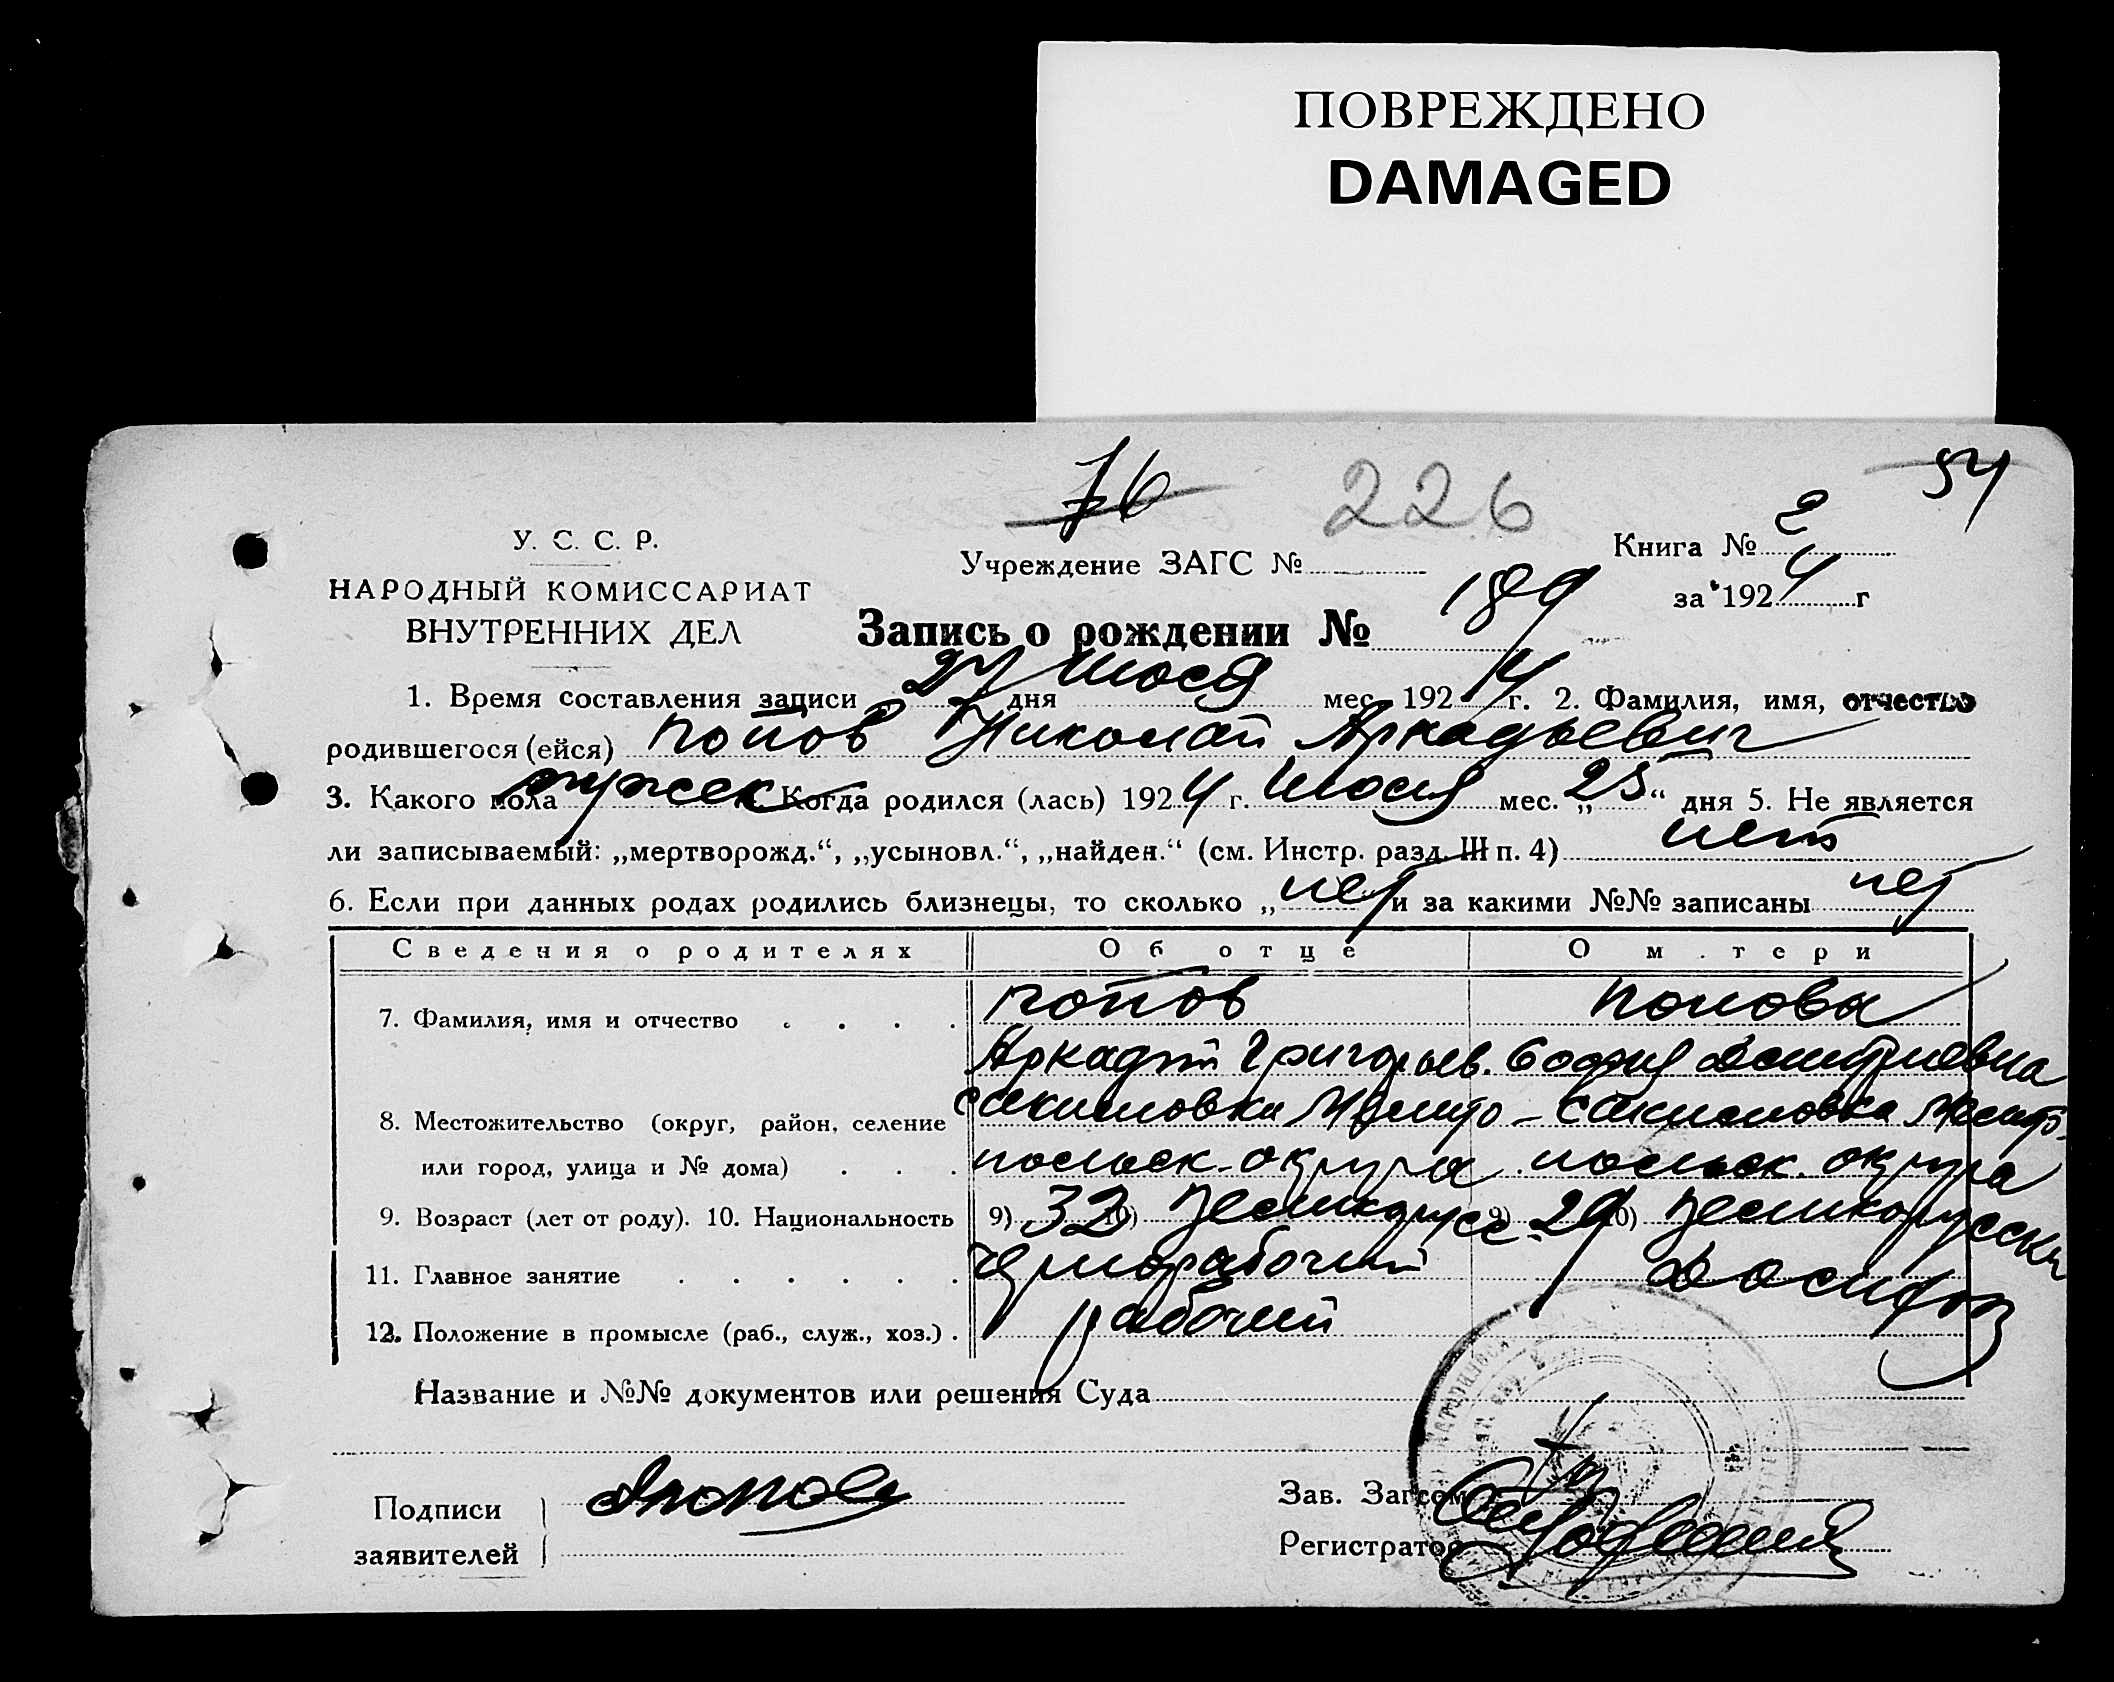 ПОВРЕЖДЕНО
DAMAGED
76 226 54
У. С. С. Р.
НАРОДНЫЙ КОМИССАРИАТ
ВНУТРЕННИХ ДЕЛ
Учреждение ЗАГС №
Книга № 2
за 1924 г
Запись о рождении № 189
1. Время составления записи 27 дня Июля мес. 1924 г. 2. Фамилия, имя, отчество
родившегося (ейся) Попов Николай Аркадьевич
3. Какого пола мужск Когда родился (лась) 1924 г. Июля мес. „25“ дня 5. Не является
ли записываемый: „мертворожд.“, „усыновл.“, „найден.“ (см. Инстр. разд. III п. 4) нет
6. Если при данных родах родились близнецы, то сколько „нет и за какими №№ записаны нет
Сведения о родителях Об отце О м.тери
7. Фамилия, имя и отчество Попов Попова
Аркадий Григорьев. София Дмитриевна
8. Местожительство (округ, район, селение Сакимовка Мелито- Сакимовка Мелито-
или город, улица и № дома) польск. округа польск. округа
9. Возраст (лет от роду). 10. Национальность 9) 32 10) Великорусс 9) 29 10) Великорусска
11. Главное занятие Чернорабочий Домохоз
12. Положение в промысле (раб., служ., хоз.) рабочий
Название и №№ документов или решения Суда
Подписи
заявителей
АПопов
Зав. Загсом
Регистратор